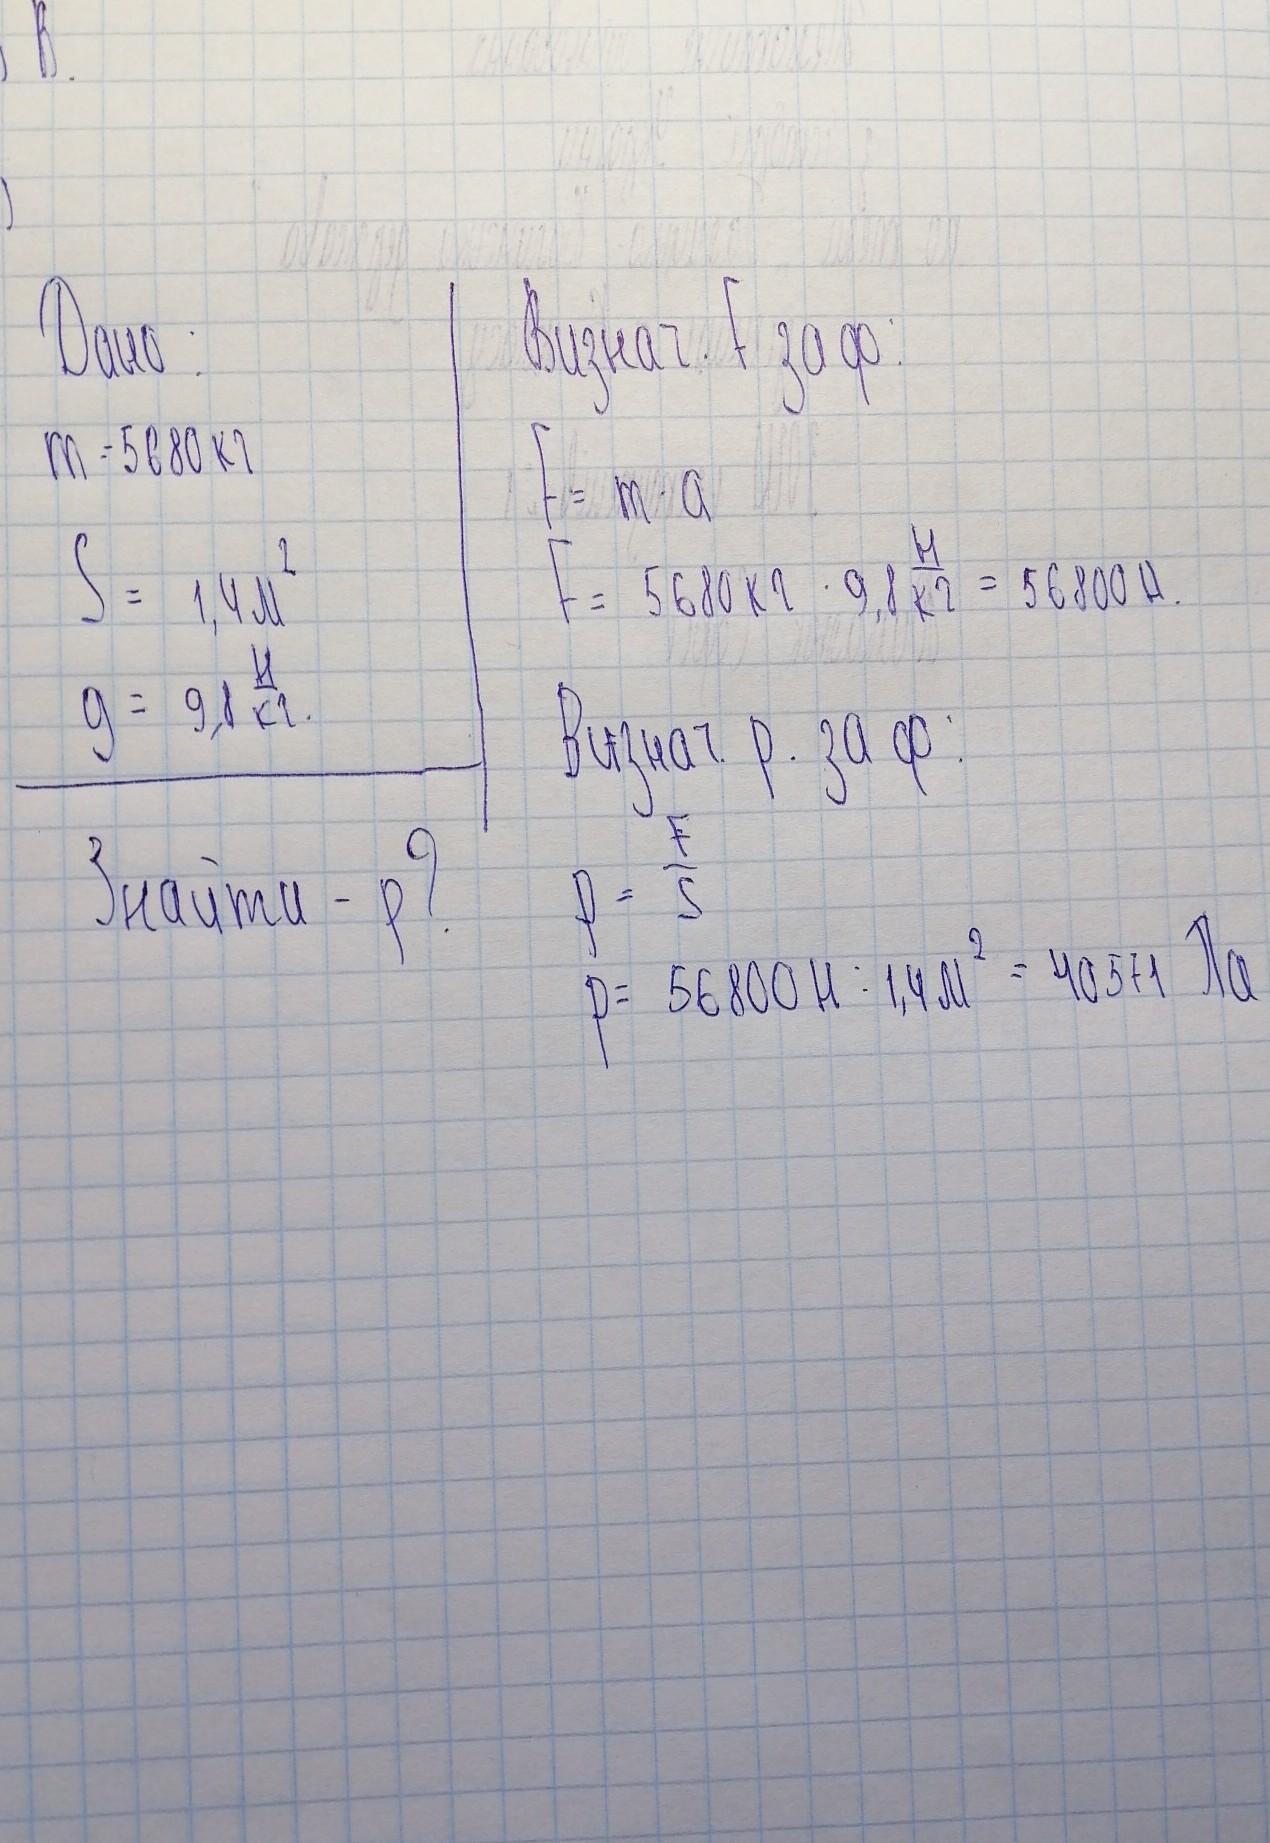 В.
Дано:
m = 5680 кг
S = 1,4 м²
g = 9,8 Н/кг.
Знайти - p?
Визнач. F за ф:
F = m · a
F = 5680 кг · 9,8 Н/кг = 56800 Н.
Визнач. p. за ф:
p = F/S
p = 56800 Н : 1,4 м² = 40571 Па